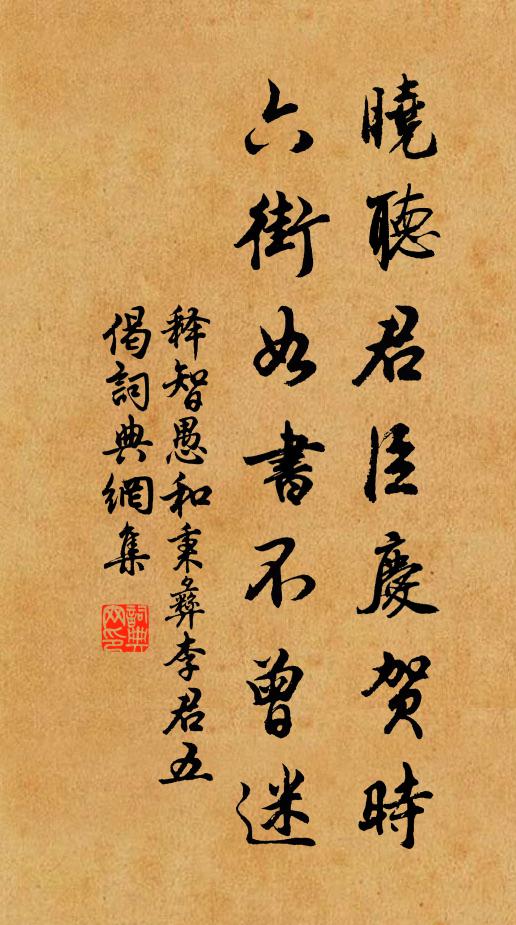 曉聽君臣慶賀時
六街如書不曾迷
釋智愚和秉彝李君五
偈詞典網集
詞典網印